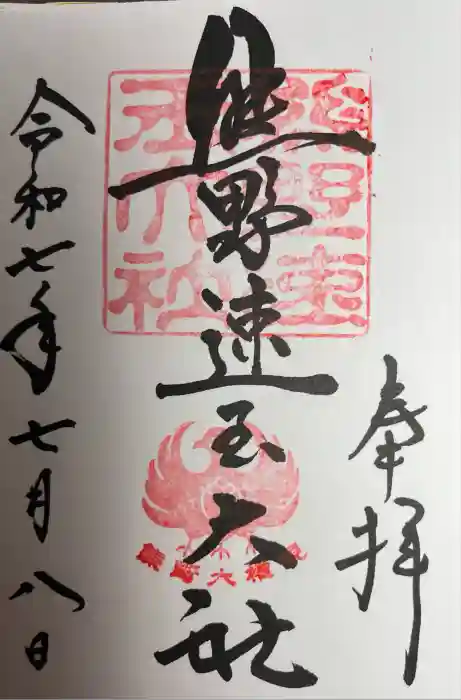 奉拝
熊野速玉大社
令和七年七月八日
熊野速玉大社